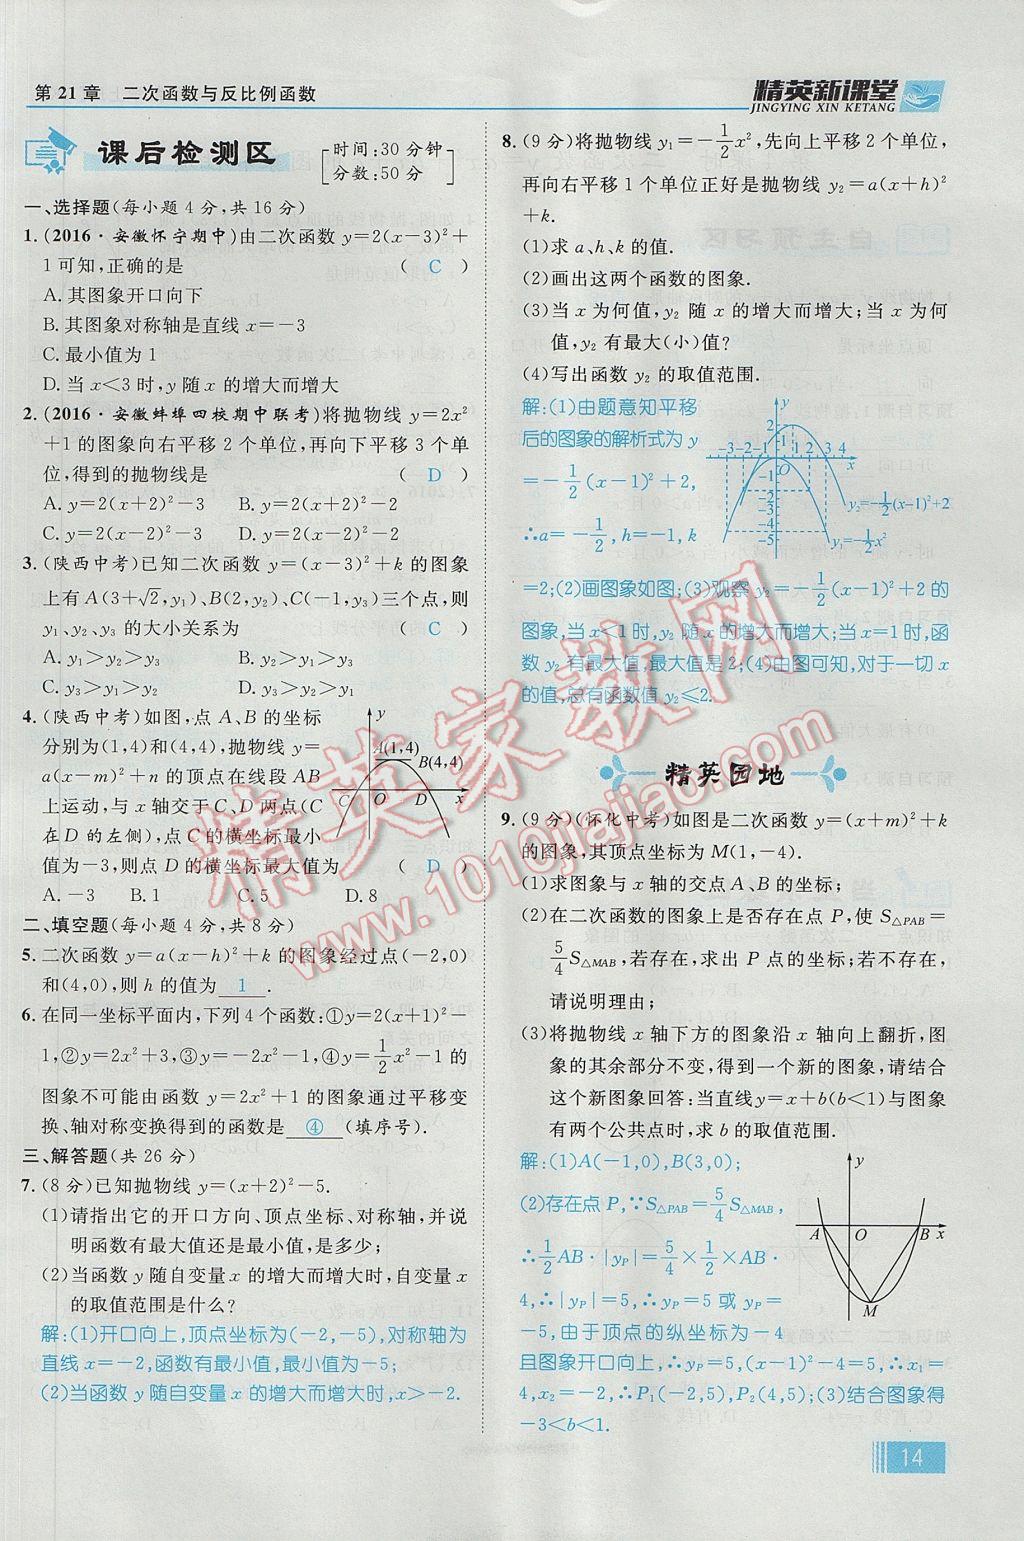 第 21 章 二次函数与反比例函数
精英新课堂
JINGYING XIN KETANG
课后检测区
[时间:30 分钟
分数:50 分]
一、选择题(每小题 4 分,共 16 分)
1.(2016·安徽怀宁期中)由二次函数 y=2(x-3)²+
1 可知,正确的是 ( C )
A.其图象开口向下
B.其图象对称轴是直线 x=-3
C.最小值为 1
D.当 x<3 时,y 随 x 的增大而增大
2.(2016·安徽蚌埠四校期中联考)将抛物线 y=2x²
+1 的图象向右平移 2 个单位,再向下平移 3 个单
位,得到的抛物线是 ( D )
A.y=2(x+2)²-3 B.y=2(x+2)²-2
C.y=2(x-2)²-3 D.y=2(x-2)²-2
3.(陕西中考)已知二次函数 y=(x-3)²+k 的图象
上有 A(3+√2,y₁)、B(2,y₂)、C(-1,y₃)三个点,则
y₁、y₂、y₃ 的大小关系为 ( C )
A.y₁>y₂>y₃ B.y₂>y₁>y₃
C.y₃>y₁>y₂ D.y₃>y₂>y₁
4.(陕西中考)如图,点 A、B 的坐标
分别为(1,4)和(4,4),抛物线 y=
a(x-m)²+n 的顶点在线段 AB
上运动,与 x 轴交于 C、D 两点(C
在 D 的左侧),点 C 的横坐标最小
值为-3,则点 D 的横坐标最大值为 ( D )
A.-3 B.1 C.5 D.8
y
A(1,4)
B(4,4)
C O D x
二、填空题(每小题 4 分,共 8 分)
5.二次函数 y=a(x-h)²+k 的图象经过点(-2,0)
和(4,0),则 h 的值为 1 .
6.在同一坐标平面内,下列 4 个函数:①y=2(x+1)²-
1,②y=2x²+3,③y=-2x²-1,④y=1/2x²-1 的
图象不可能由函数 y=2x²+1 的图象通过平移变
换、轴对称变换得到的函数是 ④ (填序号).
三、解答题(共 26 分)
7.(8 分)已知抛物线 y=(x+2)²-5.
(1)请指出它的开口方向、顶点坐标、对称轴,并说
明函数有最大值还是最小值,是多少;
(2)当函数 y 随自变量 x 的增大而增大时,自变量 x
的取值范围是什么?
解:(1)开口向上,顶点坐标为(-2,-5),对称轴为
直线 x=-2,函数有最小值,最小值为-5;
(2)当函数 y 随自变量 x 的增大而增大时,x>-2.
8.(9 分)将抛物线 y₁=-1/2x²,先向上平移 2 个单位,
再向右平移 1 个单位正好是抛物线 y₂=a(x+h)²
+k.
(1)求 a、h、k 的值.
(2)画出这两个函数的图象.
(3)当 x 为何值,y₂ 随 x 的增大而增大;当 x 为何
值时,y₂ 有最大(小)值?
(4)写出函数 y₂ 的取值范围.
解:(1)由题意知平移
后的图象的解析式为 y
=-1/2(x-1)²+2,
∴a=-1/2,h=-1,k
y
2
1
-3-2-1 O 1 2 3 4 x
-1
-2
-3
-4
-5
y₂=-1/2(x-1)²+2
y₁=-1/2x²
=2;(2)画图象如图;(3)观察 y₂=-1/2(x-1)²+2 的
图象,当 x<1 时,y₂ 随 x 的增大而增大;当 x=1 时,函
数 y₂ 有最大值,最大值是 2;(4)由图可知,对于一切 x
的值,总有函数值 y₂≤2.
精英园地
9.(9 分)(怀化中考)如图是二次函数 y=(x+m)²+k
的图象,其顶点坐标为 M(1,-4).
(1)求图象与 x 轴的交点 A、B 的坐标;
(2)在二次函数的图象上是否存在点 P,使 S△PAB=
5/4S△MAB,若存在,求出 P 点的坐标;若不存在,
请说明理由;
(3)将抛物线 x 轴下方的图象沿 x 轴向上翻折,图
象的其余部分不变,得到一个新的图象,请结合
这个新图象回答:当直线 y=x+b(b<1)与图象
有两个公共点时,求 b 的取值范围.
解:(1)A(-1,0),B(3,0);
(2)存在点 P,∵S△PAB=5/4S△MAB,
∴1/2AB·|yP|=5/4×1/2×AB·
4,∴|yP|=5,∴yP=5 或 yP=
-5,由于顶点的纵坐标为-4
y
A O B x
M
且图象开口向上,∴yP=5,(x-1)²-4=5,∴x₁=
4,x₂=-2,∴P₁(-2,5),P₂(4,5);(3)结合图象得
-3<b<1.
14
精英家教网
www.1010jiajiao.com